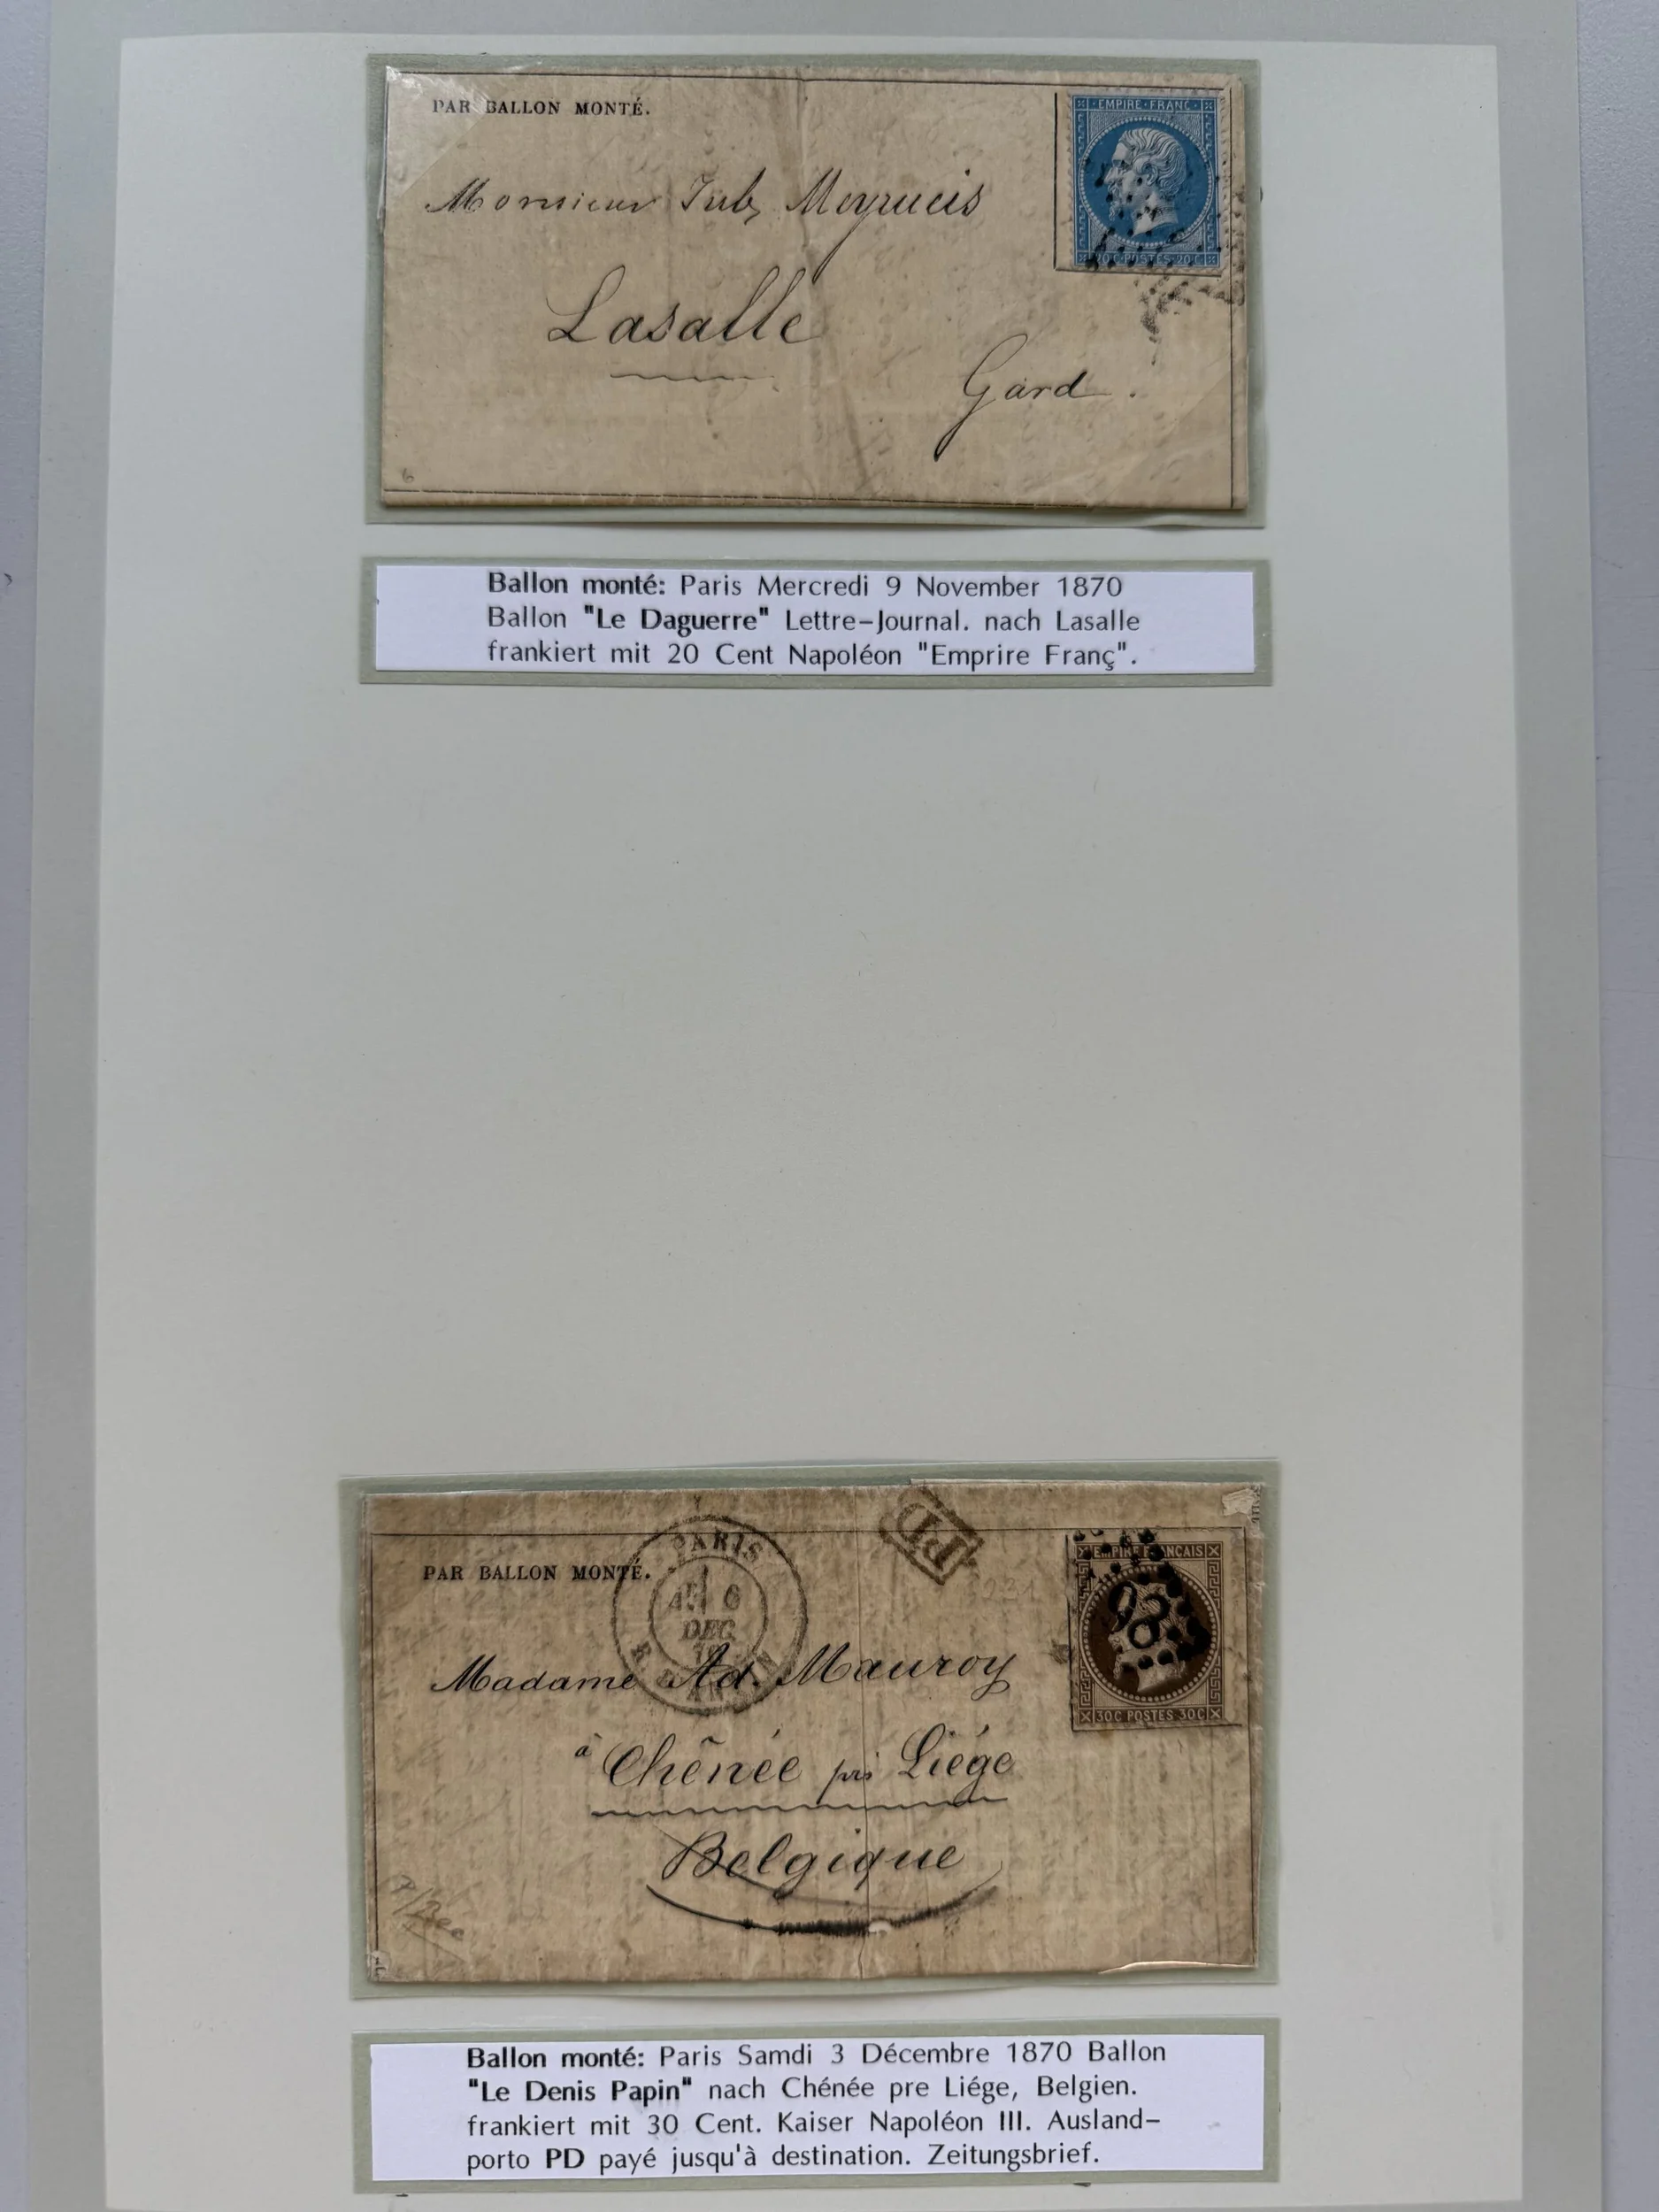 PAR BALLON MONTÉ.
EMPIRE FRANC
Monsieur Meyrueis
20 C POSTES 20 C
Lasalle
Gard.
6
Ballon monté: Paris Mercredi 9 November 1870
Ballon "Le Daguerre" Lettre-Journal. nach Lasalle
frankiert mit 20 Cent Napoléon "Emprire Franç".
PD
PARIS
PAR BALLON MONTÉ.
EMPIRE FRANÇAIS
6
DEC
Madame Ad. Mauroy
30C POSTES 30C
à Chênée près Liége
Belgique
Ballon monté: Paris Samdi 3 Décembre 1870 Ballon
"Le Denis Papin" nach Chénée pre Liége, Belgien.
frankiert mit 30 Cent. Kaiser Napoléon III. Ausland-
porto PD payé jusqu'à destination. Zeitungsbrief.